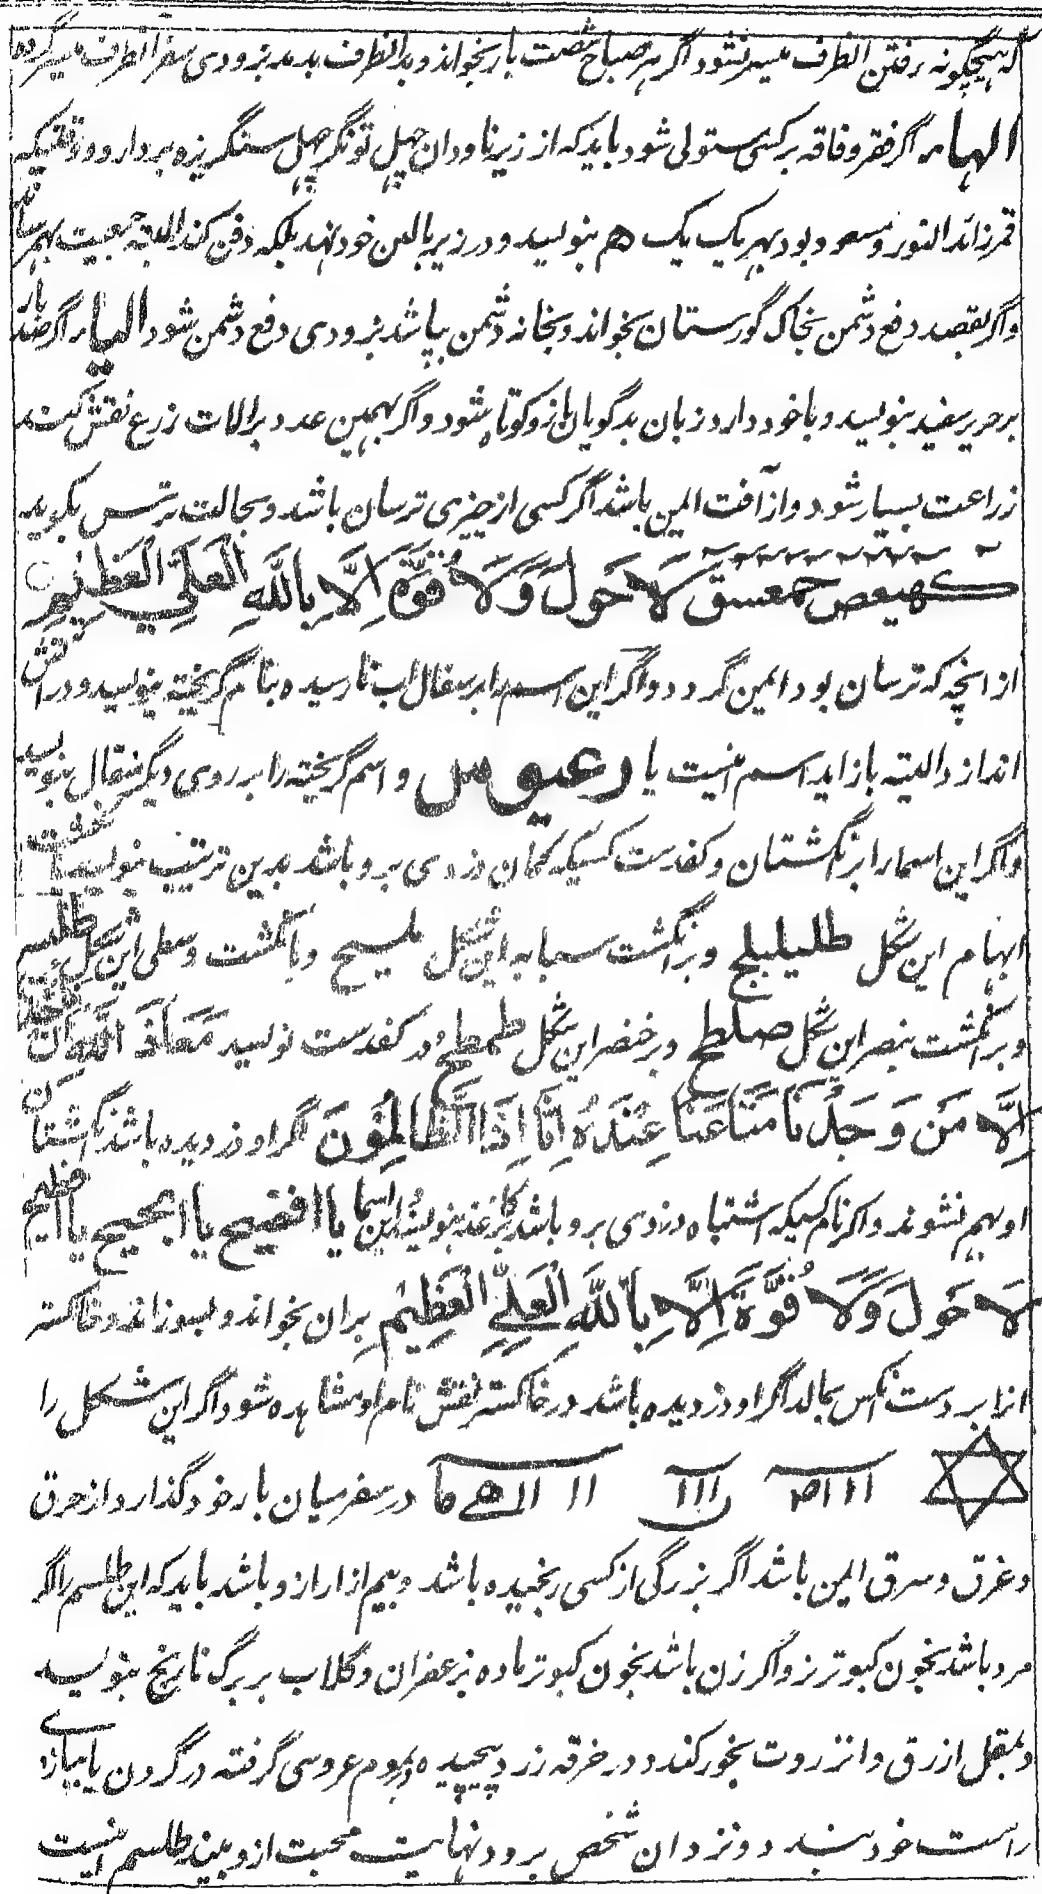 که هیچگونه رفتن الطرف میسر نشود اگر هر صباح شصت بار بخواند و بدالطرف بدمد بزودی سفر انطرف میسر گردد
الهاء اگر فقر و فاقه بر کسی مستولی شود باید که از زیر ناودان چهل تونگر چهل سنگریزه بردارد و وقتیکه
قمر زائد النور و مسعود بود بهر یک یک هم بنویسد و در زیر بالین خود نهد بلکه دفن کند البته جمعیت بهم رساند
و اگر بقصد دفع دشمن بخاک گورستان بخواند و بخانه دشمن بپاشد بزودی دفع دشمن شود الیاء اگر صد بار
بر حریر سفید بنویسد و با خود دارد زبان بدگویان ازو کوتاه شود و اگر بهمین عدد بر الات زرع نقش کنند
زراعت بسیار شود و از آفت ایمن باشد اگر کسی از چیزی ترسان باشد و بحالت ترس بگوید
كهيعص حمعسق لَا حَولَ وَلَا قُوَّةَ إِلَّا بِاللَّهِ الْعَلِيِّ الْعَظِيْمِ
از انچه که ترسان بود ایمن گردد و اگر این اسم را بر سفال اب نارسیده بنام گریخته بنویسد و در اتش
اندازد البته باز اید اسم اینست یا رعیوس و اسم گریخته را بر روی دیگر سفال بنویسد
و اگر این اسما را بر انگشتان و کفدست کسیکه گمان دزدی برو باشد بدین ترتیب بنویسد بر انگشت
ابهام این شکل طلیلبلج و بر انگشت سبابه این شکل ملیسح و بانگشت وسطی این شکل
و بر انگشت بنصر این شکل صلطح و بر خنصر این شکل طمطح و در کفدست نویسد مَعَاذَ اللَّهِ أَن نَّأْخُذَ
إِلَّا مَن وَجَدْنَا مَتَاعَنَا عِنْدَهُ إِنَّا إِذًا لَّظَالِمُونَ اگر او دزدیده باشد انگشتان
او بهم نشوند و اگر نام کسیکه اشتباه دزدی برو باشد بر کاغذ بنویسد این اسما یا افضیح یا ابحیح یا
لَا حَولَ وَلَا قُوَّةَ إِلَّا بِاللَّهِ الْعَلِيِّ الْعَظِيْمِ بران بخواند و بسوزاند و خاکستر
انرا بر دست انکس بمالد اگر او دزدیده باشد در خاکستر نقش نام او مشاهده شود اگر این شکل را
در سفر میان بار خود گذارد از حرق
و غرق و سرق ایمن باشد اگر بزرگی از کسی رنجیده باشد و بیم ازار ازو باشد باید که این طلسم را اگر
مرد باشد بخون کبوتر نر و اگر زن باشد بخون کبوتر ماده بزعفران و گلاب بر برگ نارنج بنویسد
و بمقل ازرق و انزروت بخور کند و در خرقه زرد پیچیده و بموم عروسی گرفته در گردن یا ببازوے
راست خود بندد و نزد ان شخص برود نهایت محبت ازو بیند طلسم اینست